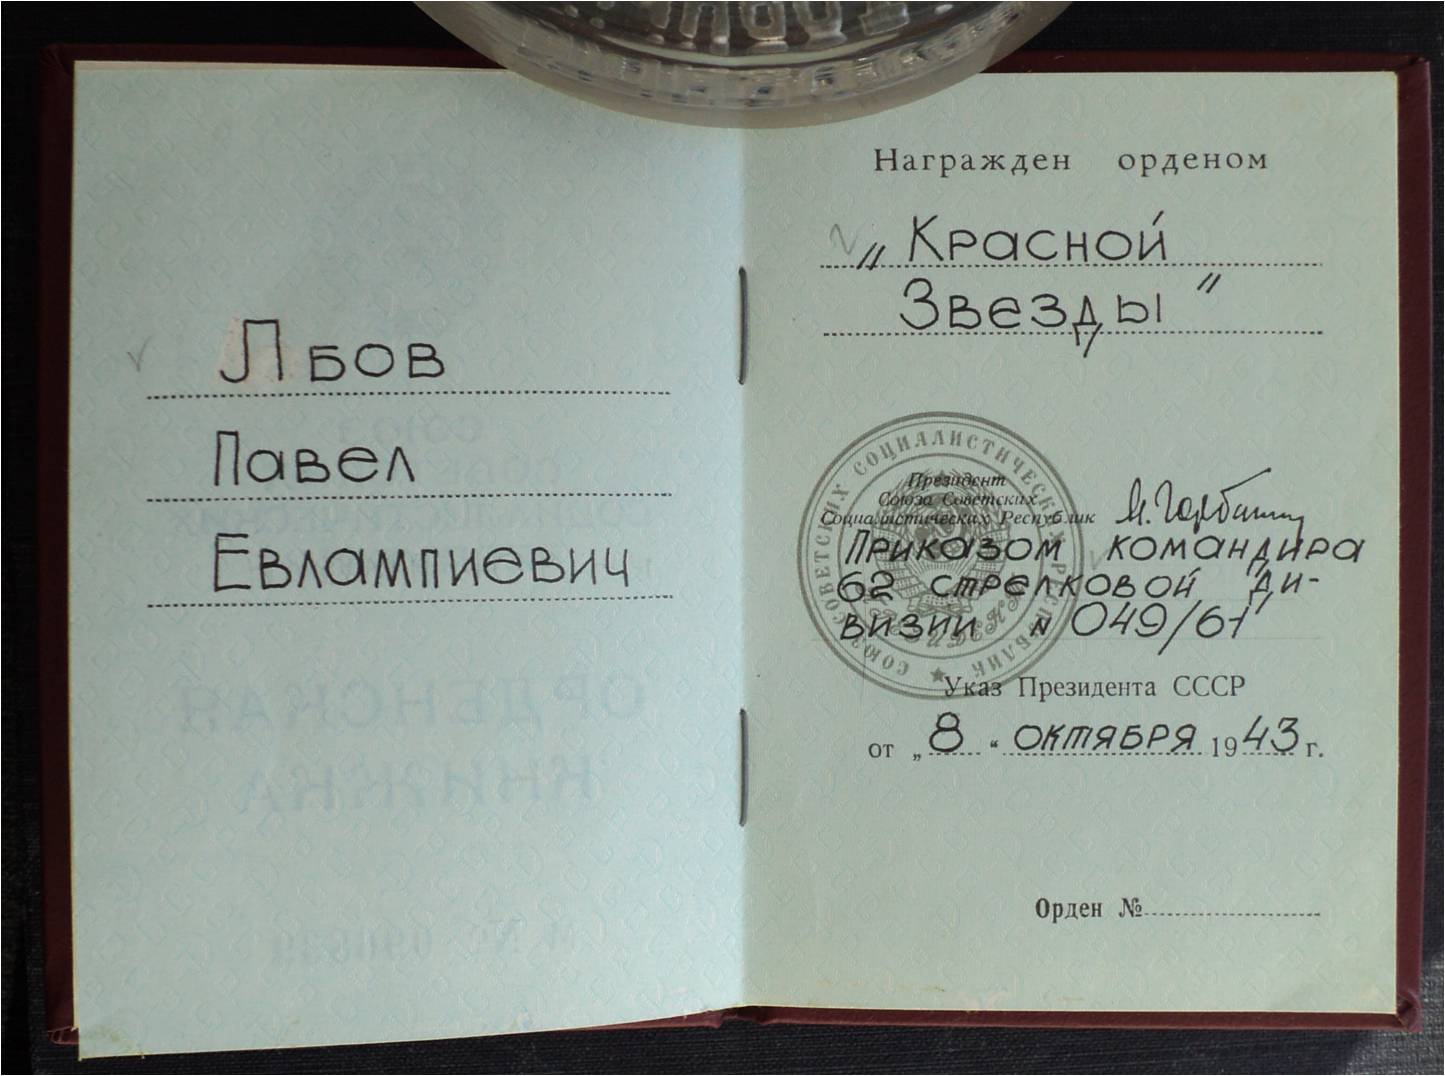 Лбов
Павел
Евлампиевич
Награжден орденом
„Красной
Звезды"
СОЮЗ СОВЕТСКИХ СОЦИАЛИСТИЧЕСКИХ РЕСПУБЛИК
Президент
Союза Советских
Социалистических Республик
М. Горбачев
Приказом командира
62 стрелковой ди-
визии N 049/61
Указ Президента СССР
от „8" октября 1943 г.
Орден №